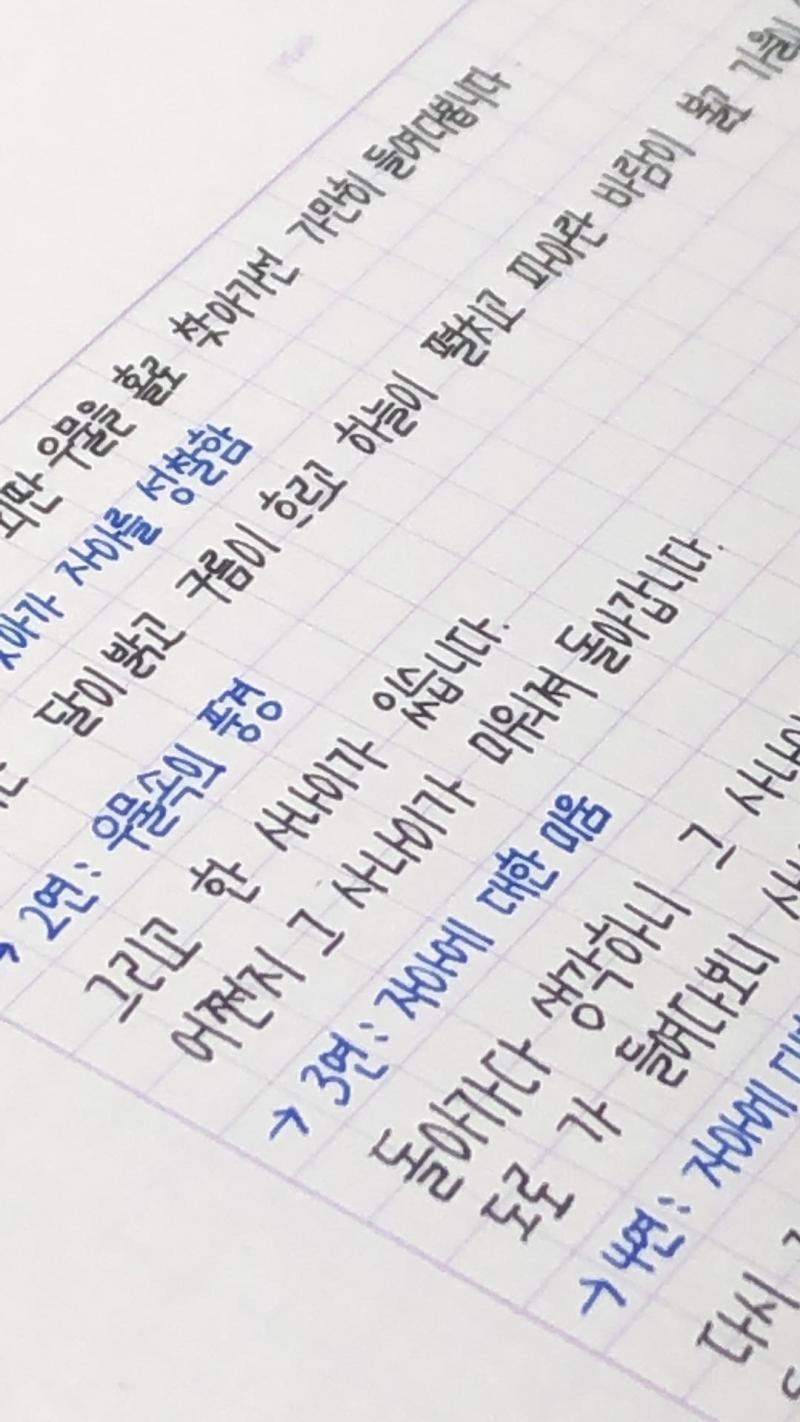 외딴 우물을 홀로 찾아가선 가만히 들여다봅니다
찾아가 자아를 성찰함
달이 밝고 구름이 흐르고 하늘이 펼치고 파아란 바람이 불고 가을이
→ 2연: 우물속의 풍경
그리고 한 사나이가 있습니다.
어쩐지 그 사나이가 미워져 돌아갑니다.
→ 3연: 자아에 대한 미움
돌아가다 생각하니 그 사나이
도로 가 들여다보니
→ 4연: 자아에
다시